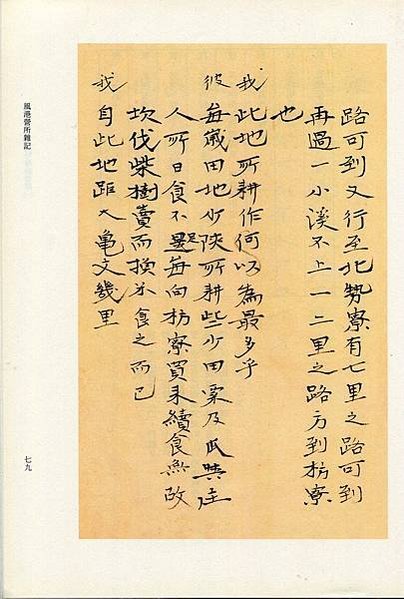 路可到又行至北勢寮有七里之路可到
再過一小溪不上一二里之路方到枋寮
也
我 此地所耕作何以為最多乎
彼 每歲田地少陝所耕些少田粟及瓜與
人所日食不足每向枋寮買來續食
坎伐柴樹賣而換米食之而已
我 自此地距大龜文幾里
風港營所雜記
七九